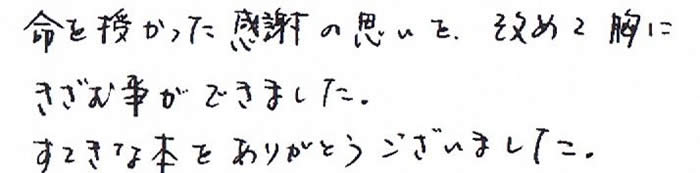 命を授かった感謝の思いを、改めて胸に
きざむ事ができました。
すてきな本をありがとうございました。